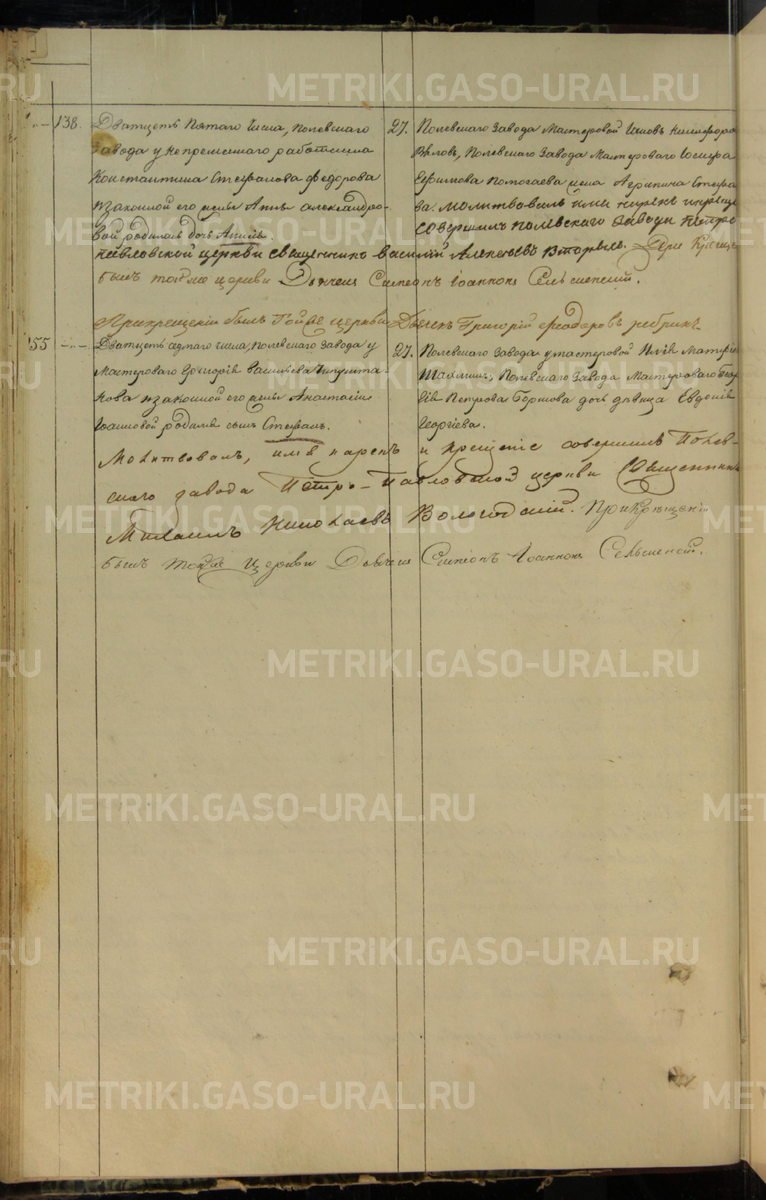 138. Дватцеть Пятаго Числа, Полевскаго
Завода у непременнаго работника
Константина Стефанова Федорова
и законной его жены Анны Александро-
вой родилась дочь Анисья
27. Полевскаго Завода Мастеровой
Полевскаго Завода Мастероваго
Ефимова жена Агрипина
ва. Молитвовалъ имя нарекъ и крещение
совершилъ Полевскаго Завода Петро
павловской церкви священникъ Василий Алексеевъ Вторыхъ.
былъ тойже церкви Дьячекъ Симеонъ Иоанновъ
При крещении былъ Тойже церкви Дьячекъ Григорий Феодоровъ
55
Дватцеть седмаго числа, Полевскаго Завода у
Мастероваго Григория Васильева
и законной его жены Анастасии
Иоанновой родился сынъ Стефанъ.
27. Полевскаго Завода Мастеровой Илия
Полевскаго Завода Мастероваго Геор
гия Петрова дочь девица Евдокия
Георгиева.
Молитвовалъ, имя нарекъ и крещение совершилъ Полев-
скаго завода Петро-Павловской церкви Священникъ
Михаилъ Николаевъ Вологодский. При крещении
былъ тойже Церкви Дьячекъ Симеонъ Иоанновъ
METRIKI.GASO-URAL.RU
METRIKI.GASO-URAL.RU
METRIKI.GASO-URAL.RU
METRIKI.GASO-URAL.RU
METRIKI.GASO-URAL.RU
METRIKI.GASO-URAL.RU
METRIKI.GASO-URAL.RU
METRIKI.GASO-URAL.RU